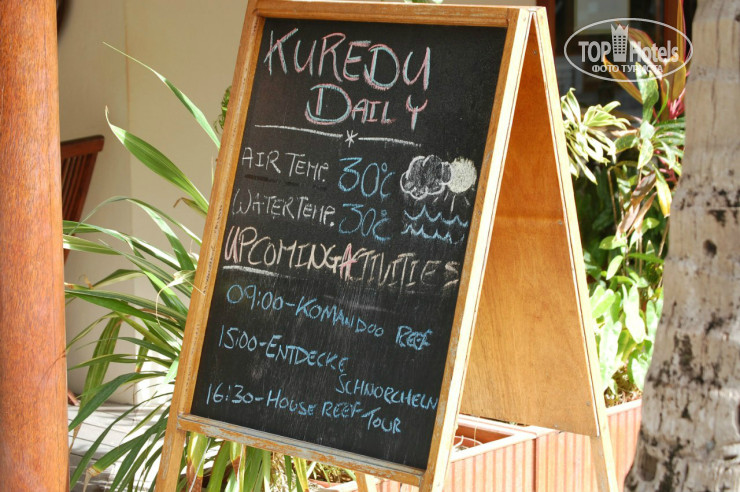 KUREDU
DAILY
AIR TEMP. 30°C
WATER TEMP. 30°C
UPCOMING ACTIVITIES
09:00-KOMANDOO REEF
15:00-ENTDECKE
SCHNORCHELN
16:30-HOUSE REEF TOUR
TOPHotels
ФОТО ТУРИСТА